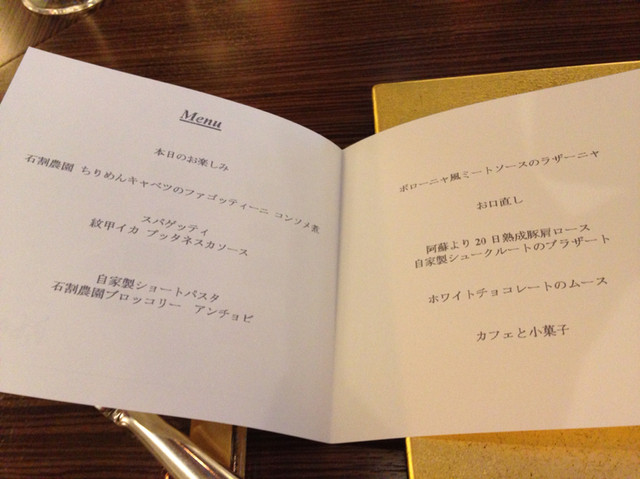 Menu
本日のお楽しみ
石割農園 ちりめんキャベツのファゴッティーニ コンソメ煮
スパゲッティ
紋甲イカ プッタネスカソース
自家製ショートパスタ
石割農園ブロッコリー アンチョビ
ボローニャ風ミートソースのラザーニャ
お口直し
阿蘇より 20 日熟成豚肩ロース
自家製シュークルートのブラザート
ホワイトチョコレートのムース
カフェと小菓子